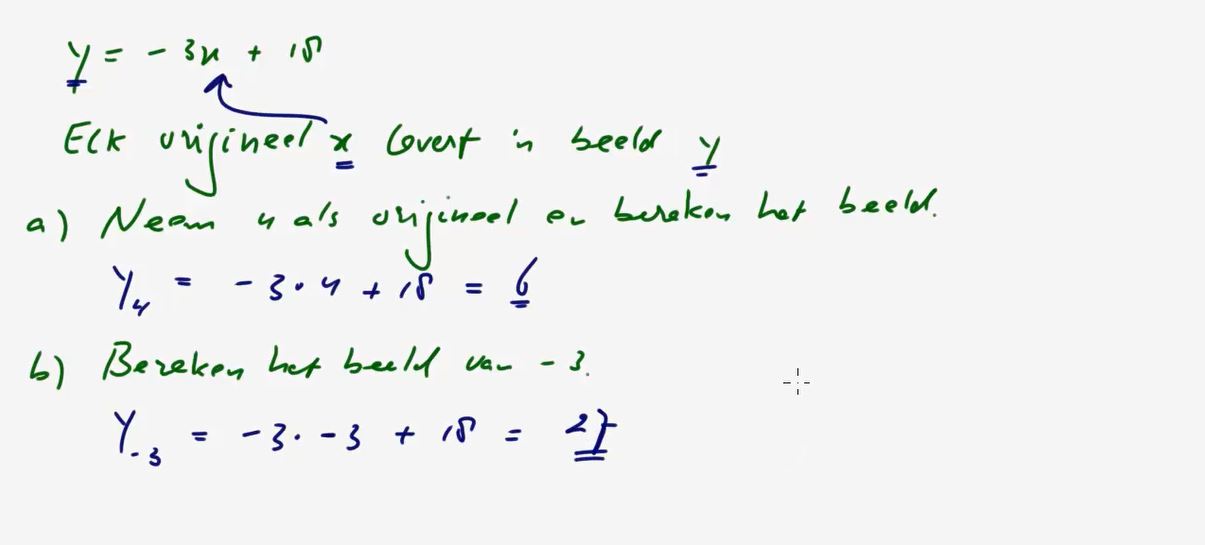 y = -3x + 18
Elk origineel x levert 'n beeld y
a) Neem 4 als origineel en bereken het beeld.
Y₄ = -3·4 + 18 = 6
b) Bereken het beeld van -3.
Y₋₃ = -3·-3 + 18 = 27